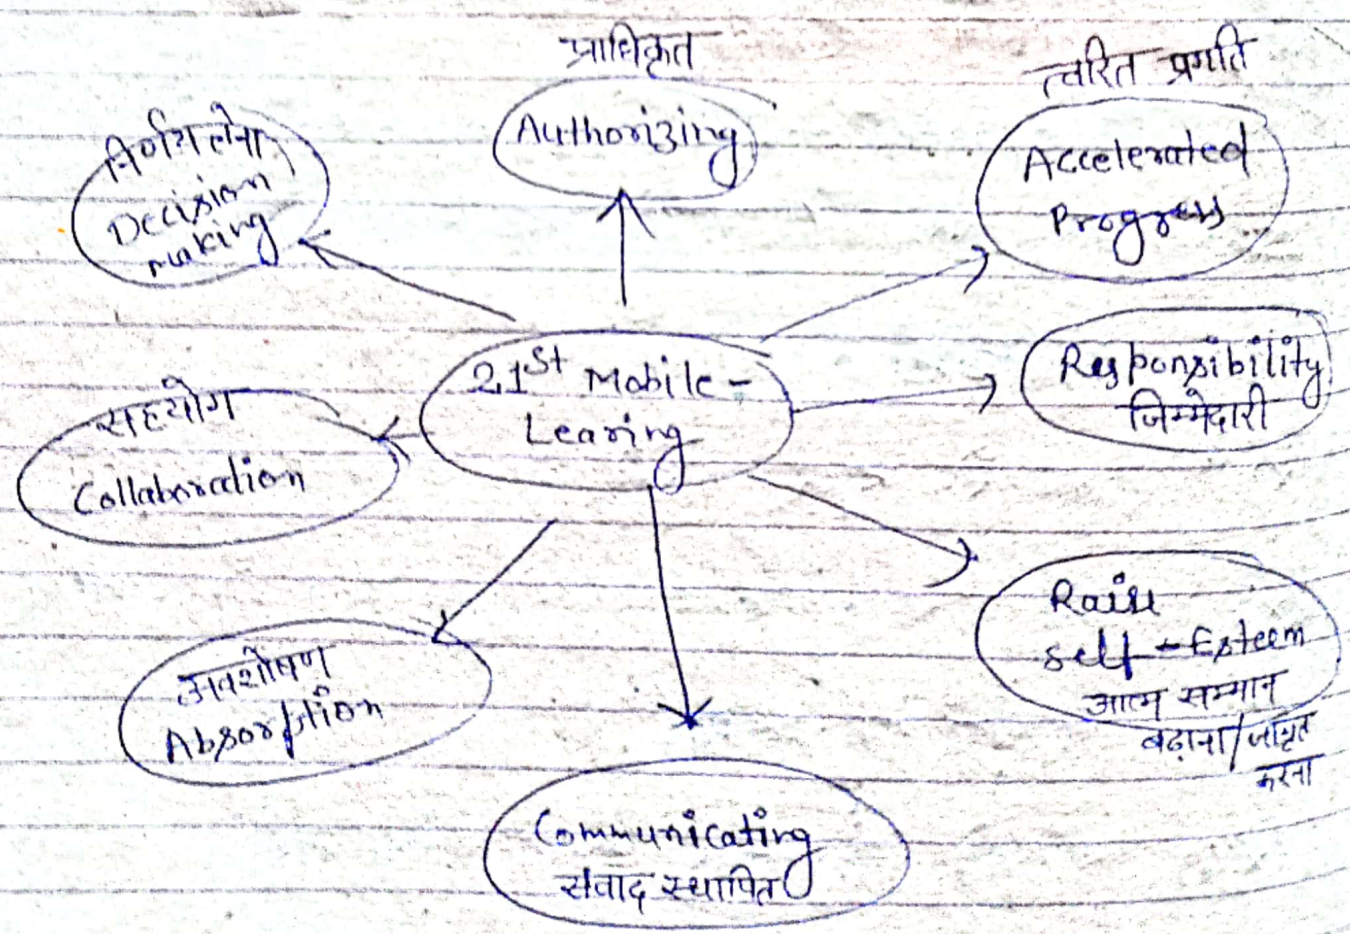 प्राधिकृत
Authorizing
त्वरित प्रगति
Accelerated
Progress
निर्णय लेना
Decision
making
21st Mobile-
Learing
Responsibility
जिम्मेदारी
सहयोग
Collaboration
Raise
self-Esteem
आत्म सम्मान
बढ़ाना/जागृत
करना
अवशोषण
Absorption
Communicating
संवाद स्थापित